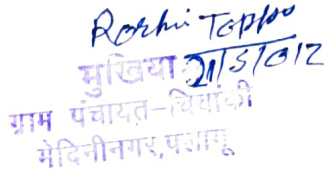 Roshni Toppo
मुखिया 21/5/012
ग्राम पंचायत-चियांकी
मेदिनीनगर, पलामू